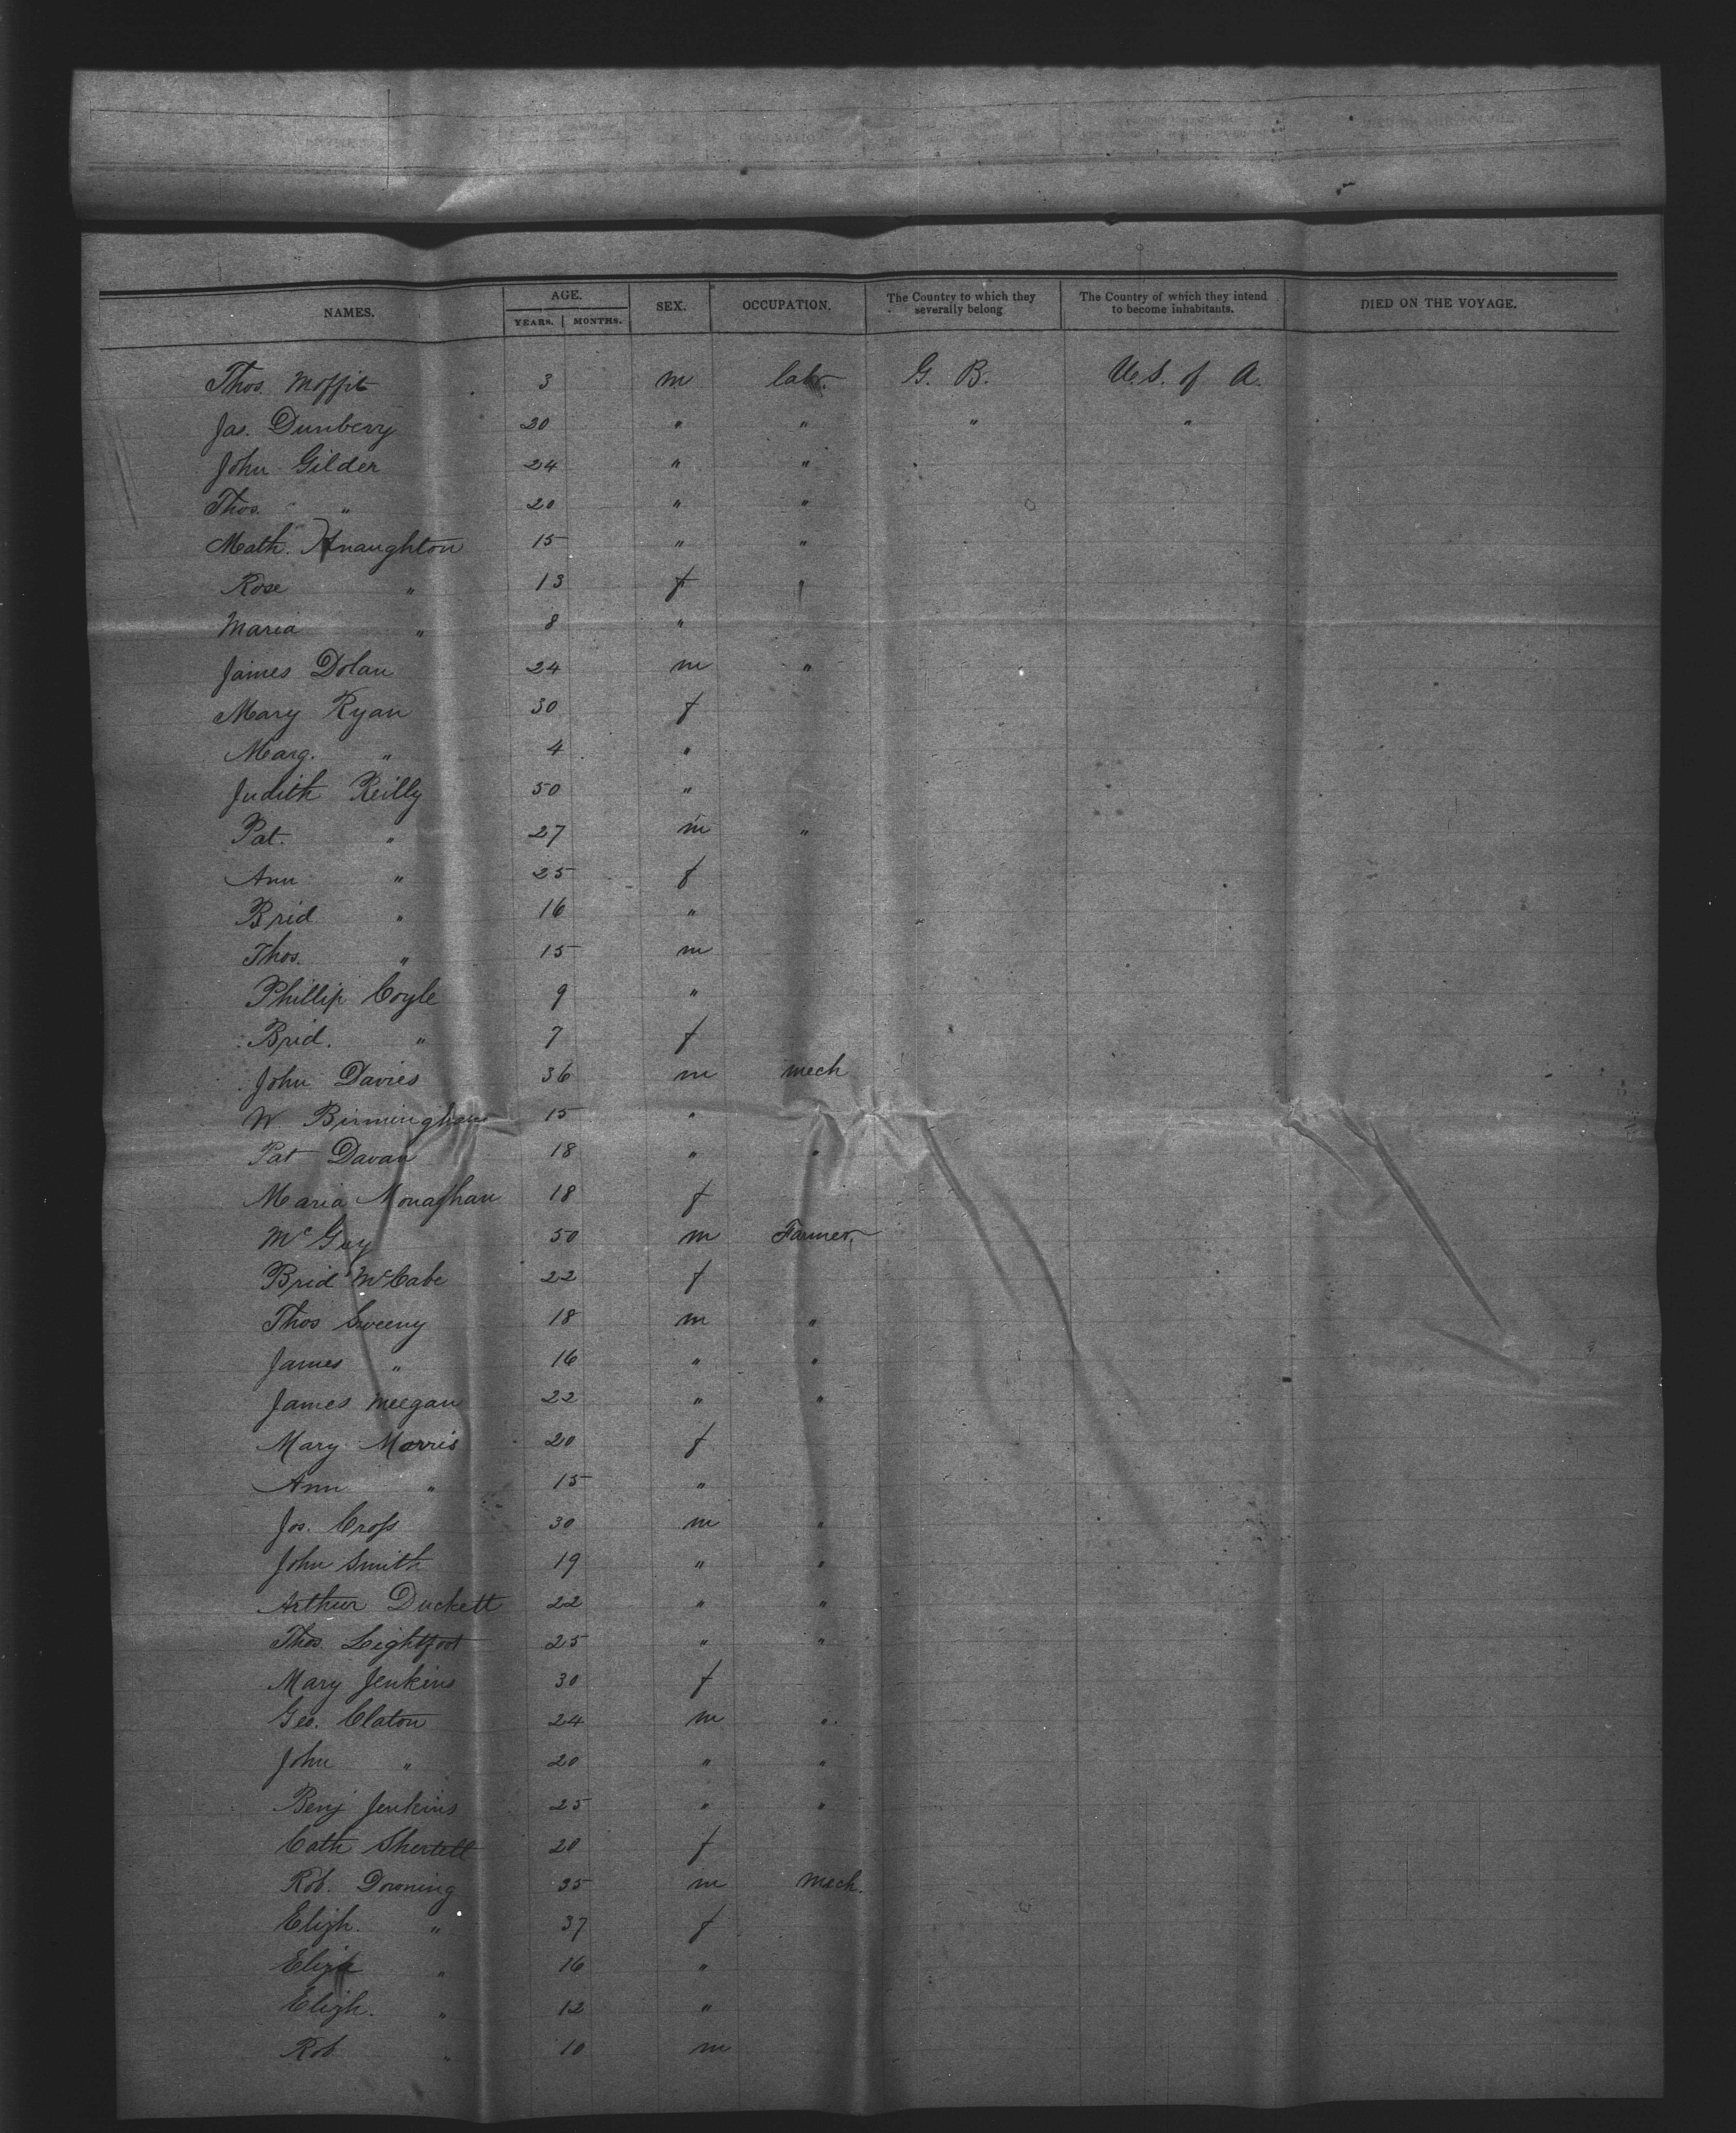 NAMES. AGE. YEARS. MONTHS. SEX. OCCUPATION. The Country to which they severally belong The Country of which they intend to become inhabitants. DIED ON THE VOYAGE.
Thos. Moffit 3 m labr. G. B. U.S. of A.
Jas. Dunbery 20 " " " "
John Gilder 24 " "
Thos. " 20 " "
Math. Knaughton 15 " "
Rose " 13 f "
Maria " 8 "
James Dolan 24 m "
Mary Ryan 30 f
Marg. " 4 "
Judith Reilly 50 "
Pat. " 27 m "
Ann " 25 f
Brid " 16 "
Thos. " 15 m
Phillip Coyle 9 "
Brid. " 7 f
John Davies 36 m mech
W. Birmingham 15 "
Pat Davan 18 " "
Maria Monaghan 18 f
McGuy 50 m Farmer
Brid McCabe 22 f
Thos Sweeny 18 m "
James " 16 " "
James Meegan 22 " "
Mary Morris 20 f
Ann " 15 "
Jos. Cross 30 m "
John Smith 19 " "
Arthur Duckett 22 " "
Thos. Lightfoot 25 " "
Mary Jenkins 30 f
Geo. Claton 24 m "
John " 20 " "
Benj Jenkins 25 " "
Cath Shertell 20 f
Rob. Downing 35 m Mech.
Elizh. " 37 f
Eliza " 16 "
Elizh. " 12 "
Rob " 10 m